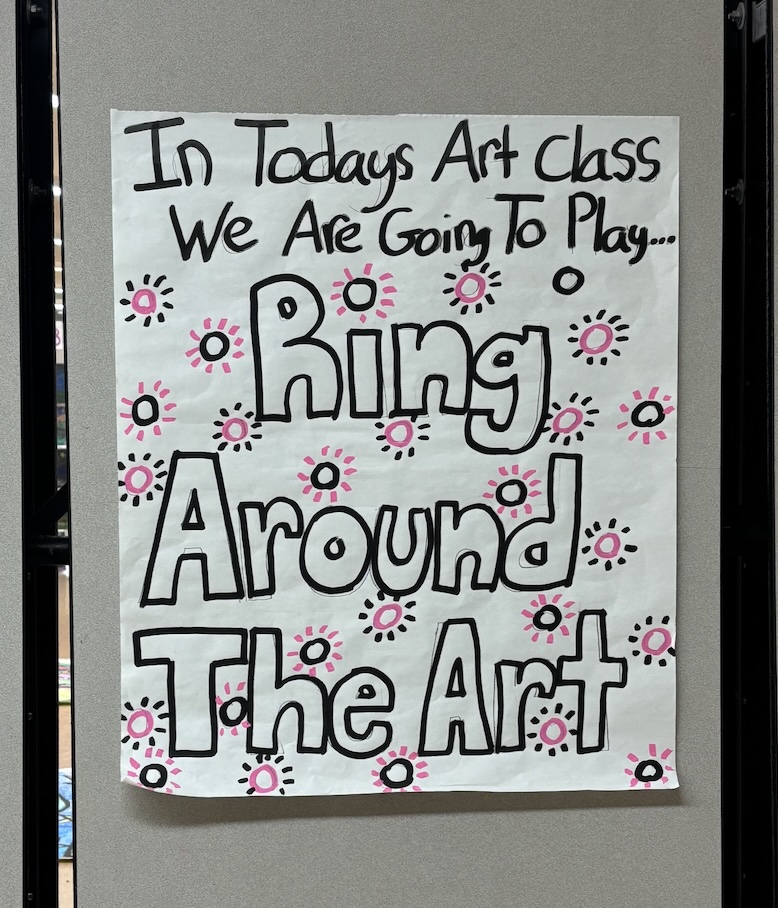 In Todays Art Class
We Are Going To Play...
Ring
Around
The Art